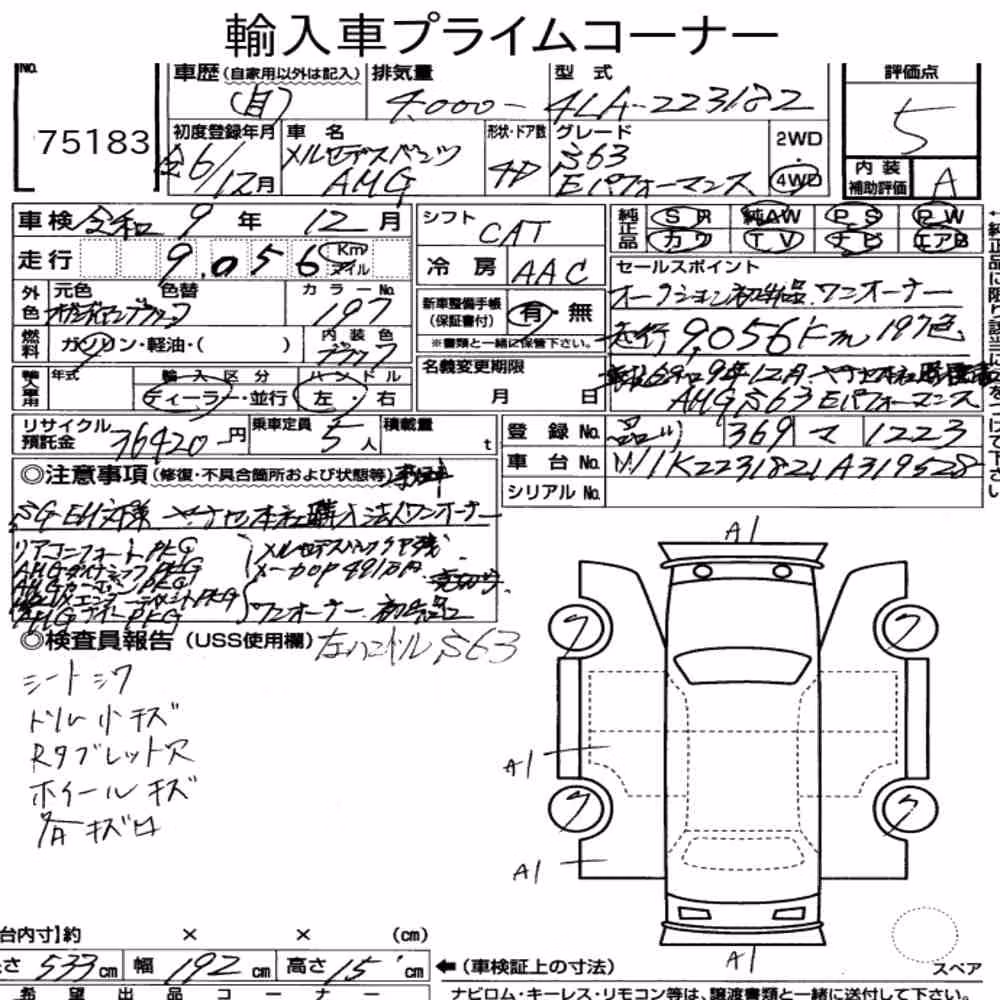 輸入車プライムコーナー
No.
75183
車歴(自家用以外は記入)
(自)
排気量
4.000-
型式
4LA-223182
評価点
5
初度登録年月
令6/12月
車名
メルセデスベンツ
AMG
形状・ドア数
4D
グレード
S63
Eパフォーマンス
2WD
・
4WD
内装
補助評価
A
車検 令和 9年 12月
シフト
CAT
純正品
SR 純AW PS PW
カワ TV ナビ エアB
走行
9.056
Km
マイル
冷房
AAC
セールスポイント
オークション初出品 ワンオーナー
走行9,056km 197色
車検令和9年12月
AMG S63 Eパフォーマンス
外色
元色 色替
カラーNo.
197
新車整備手帳
(保証書付)
有・無
※書類と一緒に保管下さい。
燃料
ガソリン・軽油・( )
内装色
ブラック
名義変更期限
月 日
輸入車用
年式
輸入区分
ディーラー・並行
ハンドル
左・右
リサイクル
預託金
76420円
乗車定員
5人
積載量
t
登録No.
369 マ 1223
車台No.
W1K2231821A319528
シリアルNo.
◎注意事項(修復・不具合箇所および状態等)
本社購入法人ワンオーナー
リアコンフォートPKG
AMGダイナミックPKG
AMGカーボンPKG
メーカOP 491万円
ワンオーナー 初出品
◎検査員報告(USS使用欄) 左ハンドル S63
シートシワ
ドリル小キズ
Rタブレット穴
ホイールキズ
各キズ凹
A1
A1
A1
A1
ワ
ワ
ワ
ワ
台内寸】約 × × (cm)
さ 533cm 幅 192cm 高さ 15 cm
←(車検証上の寸法)
スペア
希望出品コーナー
ナビロム・キーレス・リモコン等は、譲渡書類と一緒に送付して下さい。